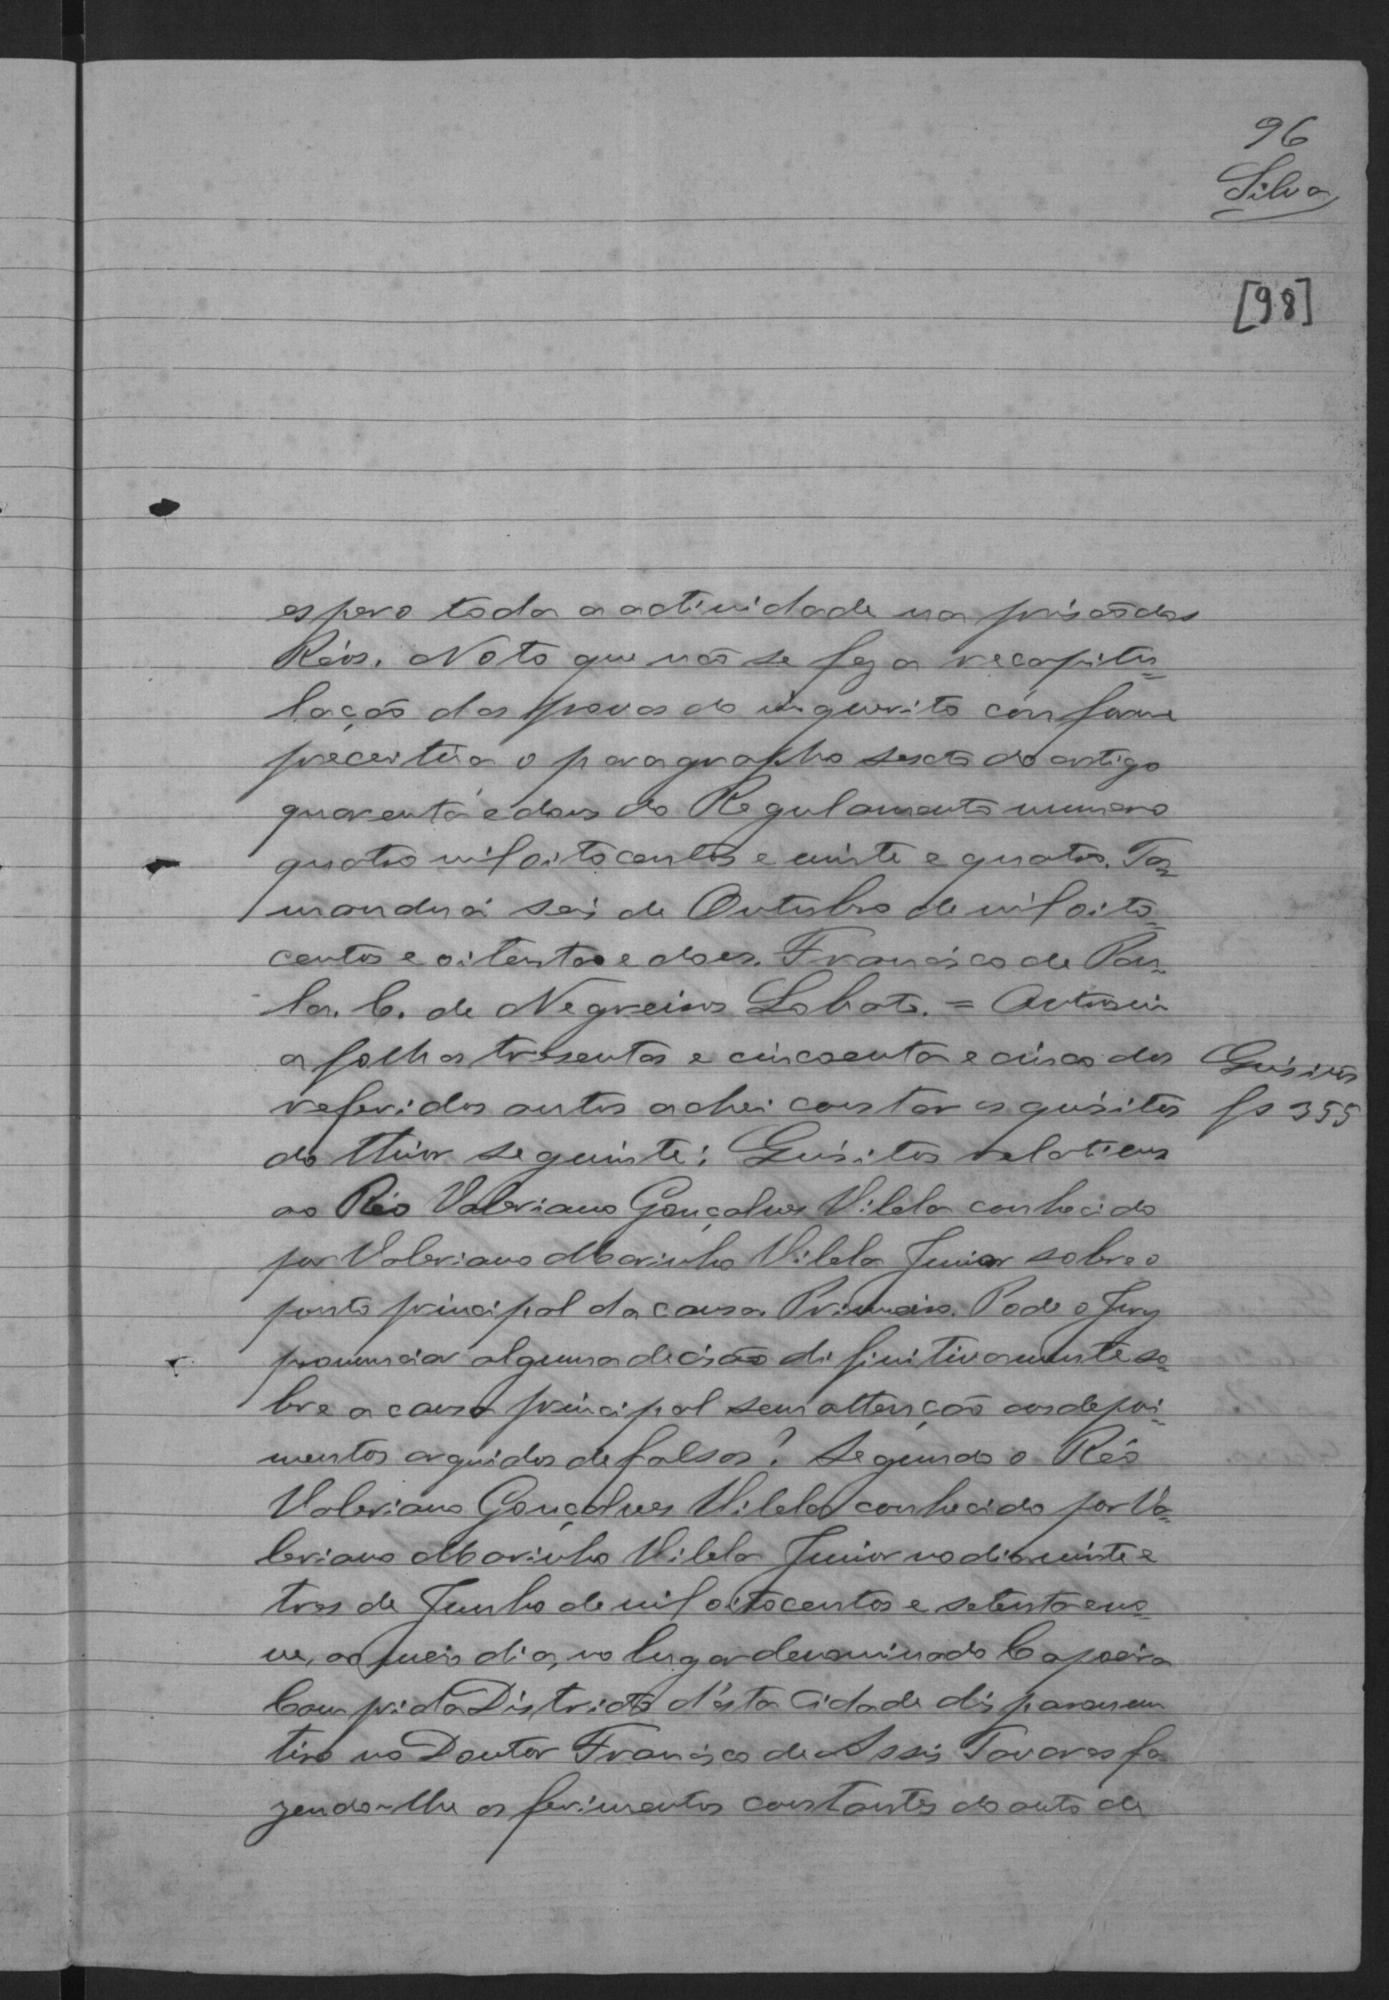 96
Silva
[98]
espero toda a actividade na prisão dos
Réos. Noto que não se fez a recapitu=
lação das provas do inquerito conforme
preceitúa o paragrapho sexto do artigo
quarenta e dous do Regulamento numero
quatro mil oitocentos e vinte e quatro. Ta=
manduá seis de Outubro de mil oito=
centos e oitenta e dois. Francisco de Pau=
la. C. de Negreiros Lobato. = Outrosim
a folhas tresentas e cincoenta e cinco dos
referidos autos achei constar os quisitos
do theor seguinte: Quisitos relativos
ao Réo Valeriano Gonçalves Vilela conhecido
por Valeriano Marinho Vilela Junior sobre o
ponto principal da causa. Primeiro. Pode o Jury
pronunciar alguma decisão difinitivamente so=
bre a causa principal sem attenção aos depoi=
mentos arguidos de falsos? Segundo o Réo
Valeriano Gonçalves Vilela conhecido por Va=
leriano Marinho Vilela Junior no dia vinte e
tres de Junho de mil oitocentos e setenta e no=
ve, ao meio dia, no lugar denominado Capoeira
Comprida Districto d'esta Cidade disparou um
tiro no Doutor Francisco de Assis Tavares fa
zendo-lhe os ferimentos constantes do auto de
Quisitos
fs 355